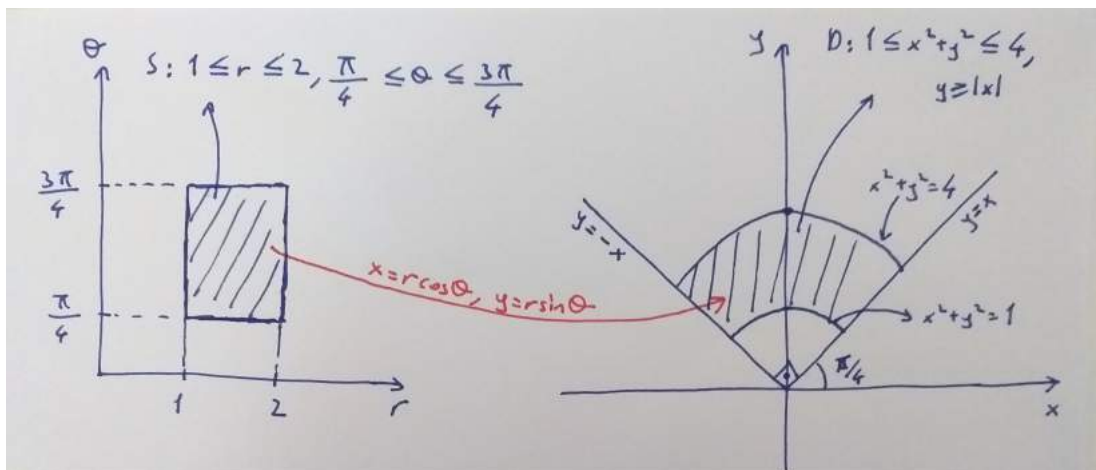 θ
S: 1 ≤ r ≤ 2, π/4 ≤ θ ≤ 3π/4
3π/4
π/4
1
2
r
x=rcosθ, y=rsinθ
y
D: 1 ≤ x²+y² ≤ 4,
y≥|x|
x²+y²=4
y=-x
y=x
x²+y²=1
π/4
x